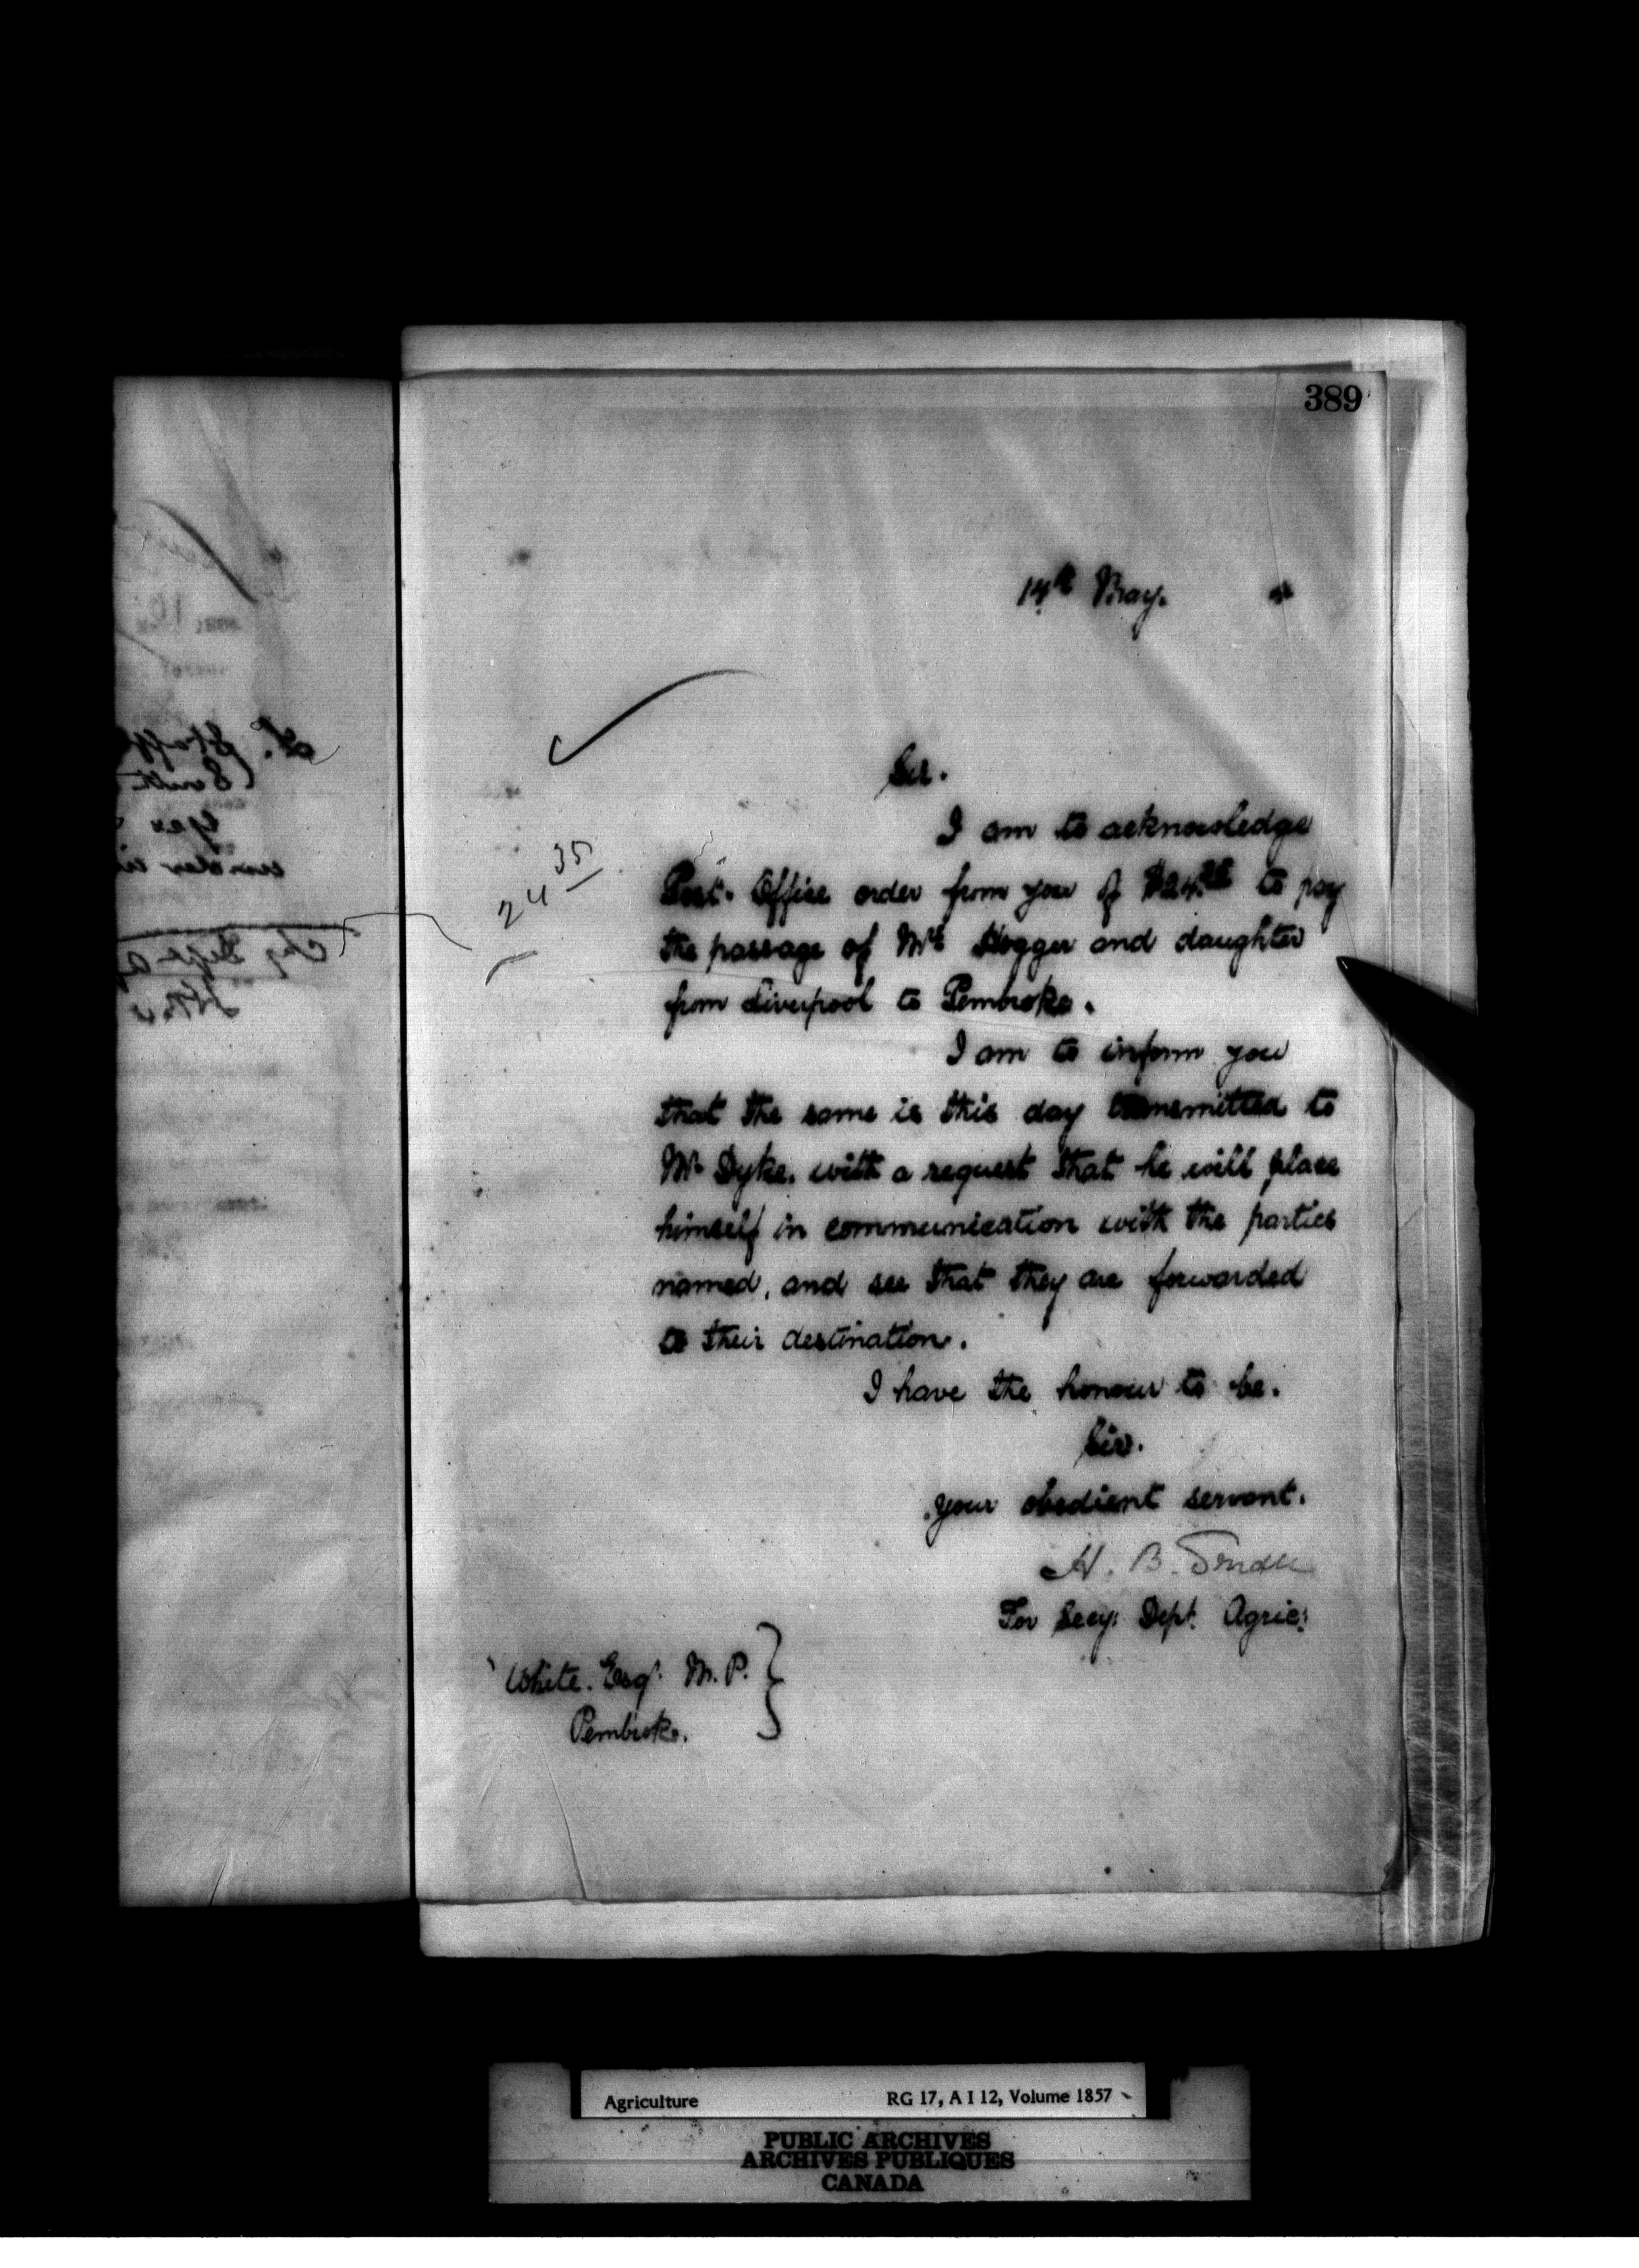 389
14th May.
Sir.
I am to acknowledge
24 35
Post. Office order from you of $24.35 to pay
the passage of Mrs Hogger and daughter
from Liverpool to Pembroke.
I am to inform you
that the same is this day transmitted to
Mr Dyke. with a request that he will place
himself in communication with the parties
named, and see that they are forwarded
to their destination.
I have the honour to be.
Sir.
your obedient servant.
H. B. Small
For Secy: Dept. Agric:
White. Esq. M. P.
Pembroke.
Agriculture RG 17, A I 12, Volume 1857
PUBLIC ARCHIVES
ARCHIVES PUBLIQUES
CANADA